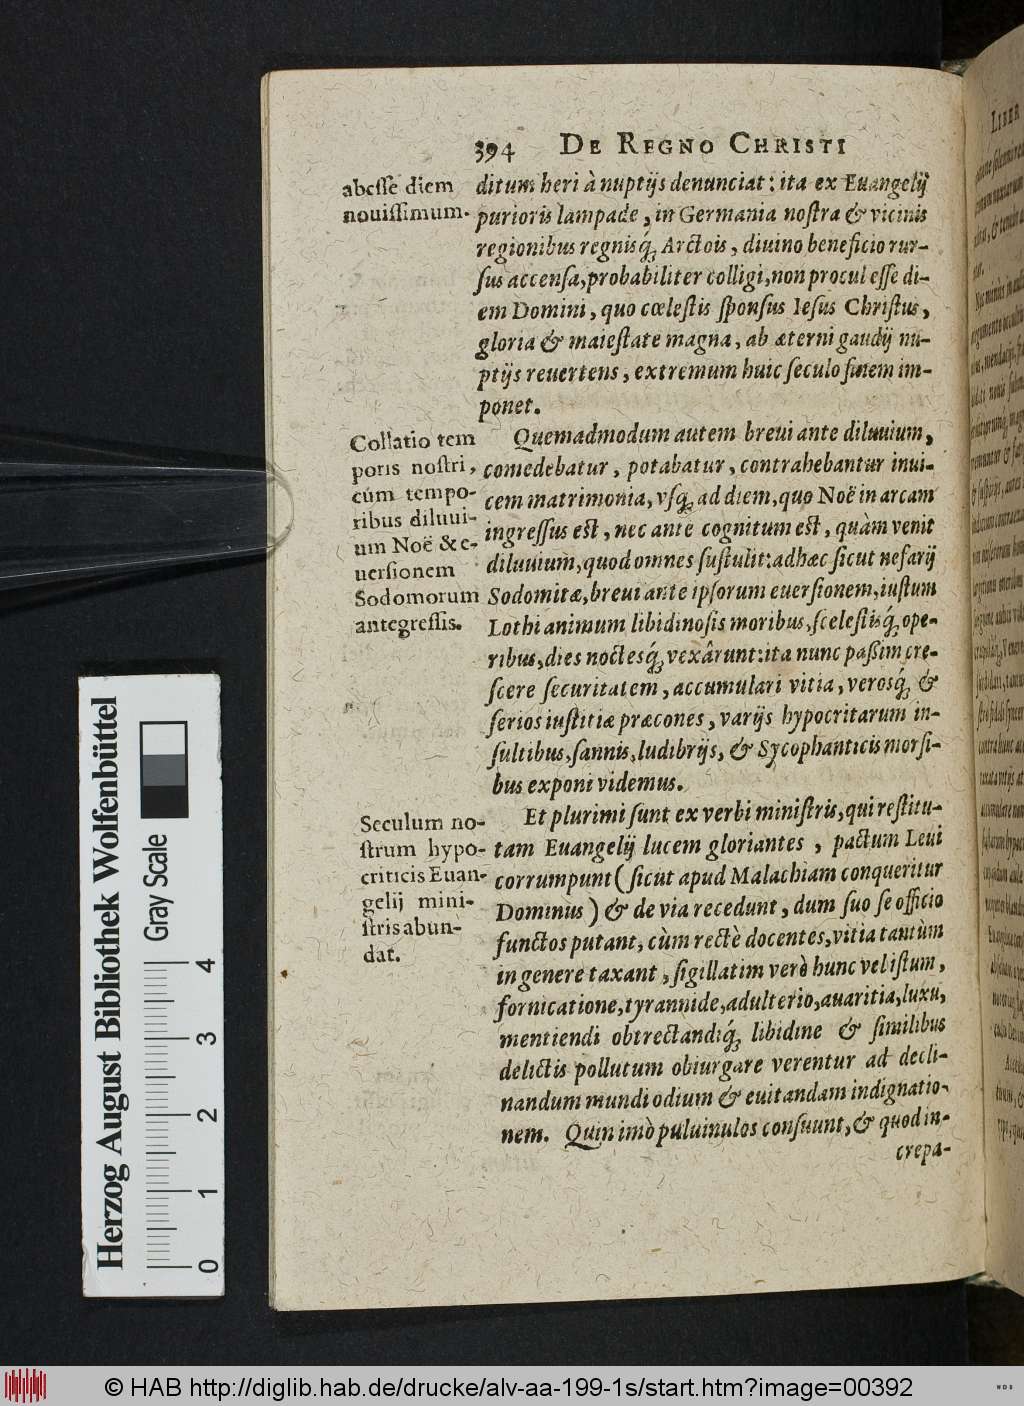 394 DE REGNO CHRISTI
abesse diem
nouissimum.
ditum heri à nuptijs denunciat: ita ex Euangelij
purioris lampade, in Germania nostra & vicinis
regionibus regnisq́; Arctois, diuino beneficio rur-
sus accensa, probabiliter colligi, non procul esse di-
em Domini, quo cœlestis sponsus Iesus Christus,
gloria & maiestate magna, ab æterni gaudij nu-
ptijs reuertens, extremum huic seculo finem im-
ponet.
Collatio tem
poris nostri,
cúm tempo-
ribus diluui-
um Noë & e-
uersionem
Sodomorum
antegressis.
Quemadmodum autem breui ante diluuium,
comedebatur, potabatur, contrahebantur inui-
cem matrimonia, vsq́; ad diem, quo Noë in arcam
ingressus est, nec ante cognitum est, quàm venit
diluuium, quod omnes sustulit: adhæc sicut nefarij
Sodomitæ, breui ante ipsorum euersionem, iustum
Lothi animum libidinosis moribus, scelestisq́; ope-
ribus, dies noctesq́; vexârunt: ita nunc paßim cre-
scere securitatem, accumulari vitia, verosq́; &
serios iustitiæ præcones, varijs hypocritarum in-
sultibus, sannis, ludibrijs, & Sycophanticis morsi-
bus exponi videmus.
Seculum no-
strum hypo-
criticis Euan-
gelij mini-
stris abun-
dat.
Et plurimi sunt ex verbi ministris, qui restitu-
tam Euangelij lucem gloriantes, pactum Leui
corrumpunt (sicut apud Malachiam conqueritur
Dominus) & de via recedunt, dum suo se officio
functos putant, cùm rectè docentes, vitia tantùm
in genere taxant, sigillatim verò hunc vel istum,
fornicatione, tyrannide, adulterio, auaritia, luxu,
mentiendi obtrectandiq́; libidine & similibus
delictis pollutum obiurgare verentur ad decli-
nandum mundi odium & euitandam indignatio-
nem. Quin imò puluinulos consuunt, & quod in-
crepa-
LIBER
Herzog August Bibliothek Wolfenbüttel
Gray Scale
0 1 2 3 4
© HAB http://diglib.hab.de/drucke/alv-aa-199-1s/start.htm?image=00392